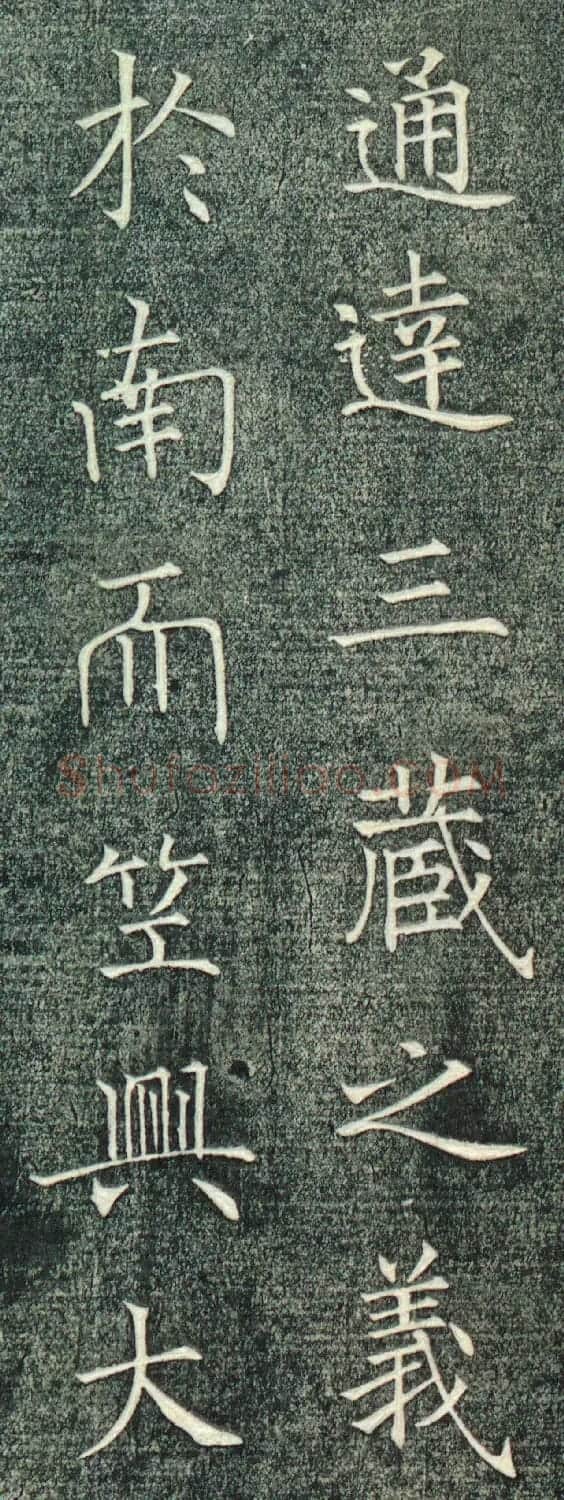 通逹三藏之義
於南𠀑笁興大
Shufaziliao.COM